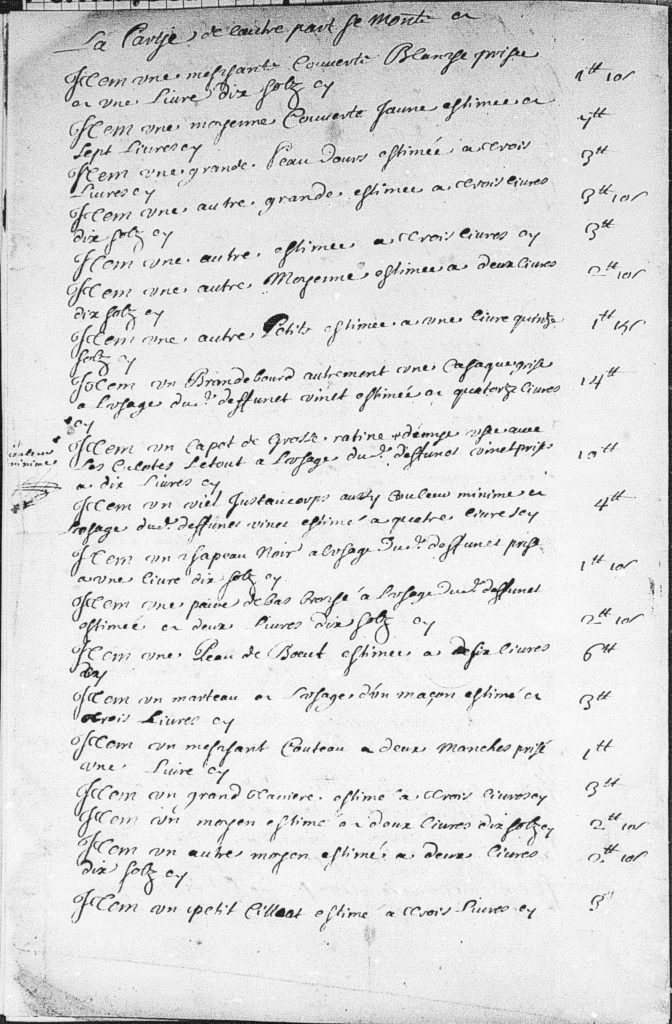 La Partye de lautre part se monte a
Item une meschante Couverte Blanche prisee
a une Livre dix solz cy 1tt 10s
Item une moyenne Couverte Jaune estimee a
sept Livres cy 7tt
Item une grande Peau dours estimée a trois
Livres cy 3tt
Item une autre grande estimee a trois livres
dix solz cy 3tt 10s
Item une autre estimee a trois livres cy 3tt
Item une autre Moyenne estimee a deux livres
dix solz cy 2tt 10s
Item une autre Petite estimée a une livre quinze
solz cy 1tt 15s
Item un Brandebourd autrement une Casaque grise
a Lusage dud. deffunct vinet estimée a quatorze livres 14tt
cy
Item un Capot de Grosse ratine demye usée avec
et couleur
minime
Les Culotes Le tout a Lusage dud. deffunct vinet prisé
a dix Livres cy 10tt
Item un viel Justaucorps aussy Couleur minime a
Lusage dud. deffunct vinet estimé a quatre livres cy 4tt
Item un chapeau Noir a lusage dud. deffunct prisé
a une livre dix solz cy 1tt 10s
Item une paire de bas a Lusage dud. deffunct
estimée a deux Livres dix solz cy 2tt 10s
Item une Peau de Boeuf estimee a six livres 6tt
cy
Item un marteau a Lusage d'un maçon estimé a
trois Livres cy 3tt
Item un meschant Couteau a deux Manches prisé
une Livre cy 1tt
Item un grand estimé a trois livres cy 3tt
Item un moyen estimé a deux livres dix solz cy 2tt 10s
Item un autre moyen estimé a deux livres
dix solz cy 2tt 10s
Item un petit estimé a trois Livres cy 3